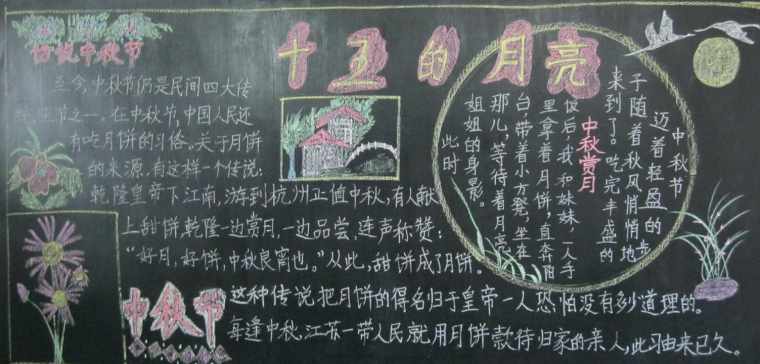 十五的月亮
话说中秋节
至今,中秋节仍是民间四大传
节之一。在中秋节,中国人民还
有吃月饼的习俗。关于月饼
的来源,有这样一个传说:
乾隆皇帝下江南,游到杭州正值中秋,有人献
上甜饼,乾隆一边赏月,一边品尝,连声称赞:
“好月,好饼,中秋良宵也。”从此,甜饼成了月饼。
这种传说把月饼的得名归于皇帝一人恐怕没有多少道理的。
每逢中秋,江苏一带人民就用月饼款待归家的亲人,此习由来已久。
中秋节
中秋赏月
中秋节
迈着轻盈的步
子随着秋风悄悄地
来到了。吃完丰盛的
饭后,我和妹妹,一人手
里拿着月饼,直奔阳
台,带着小方凳,坐在
那儿,等待着月亮
姐姐的身影。
此时